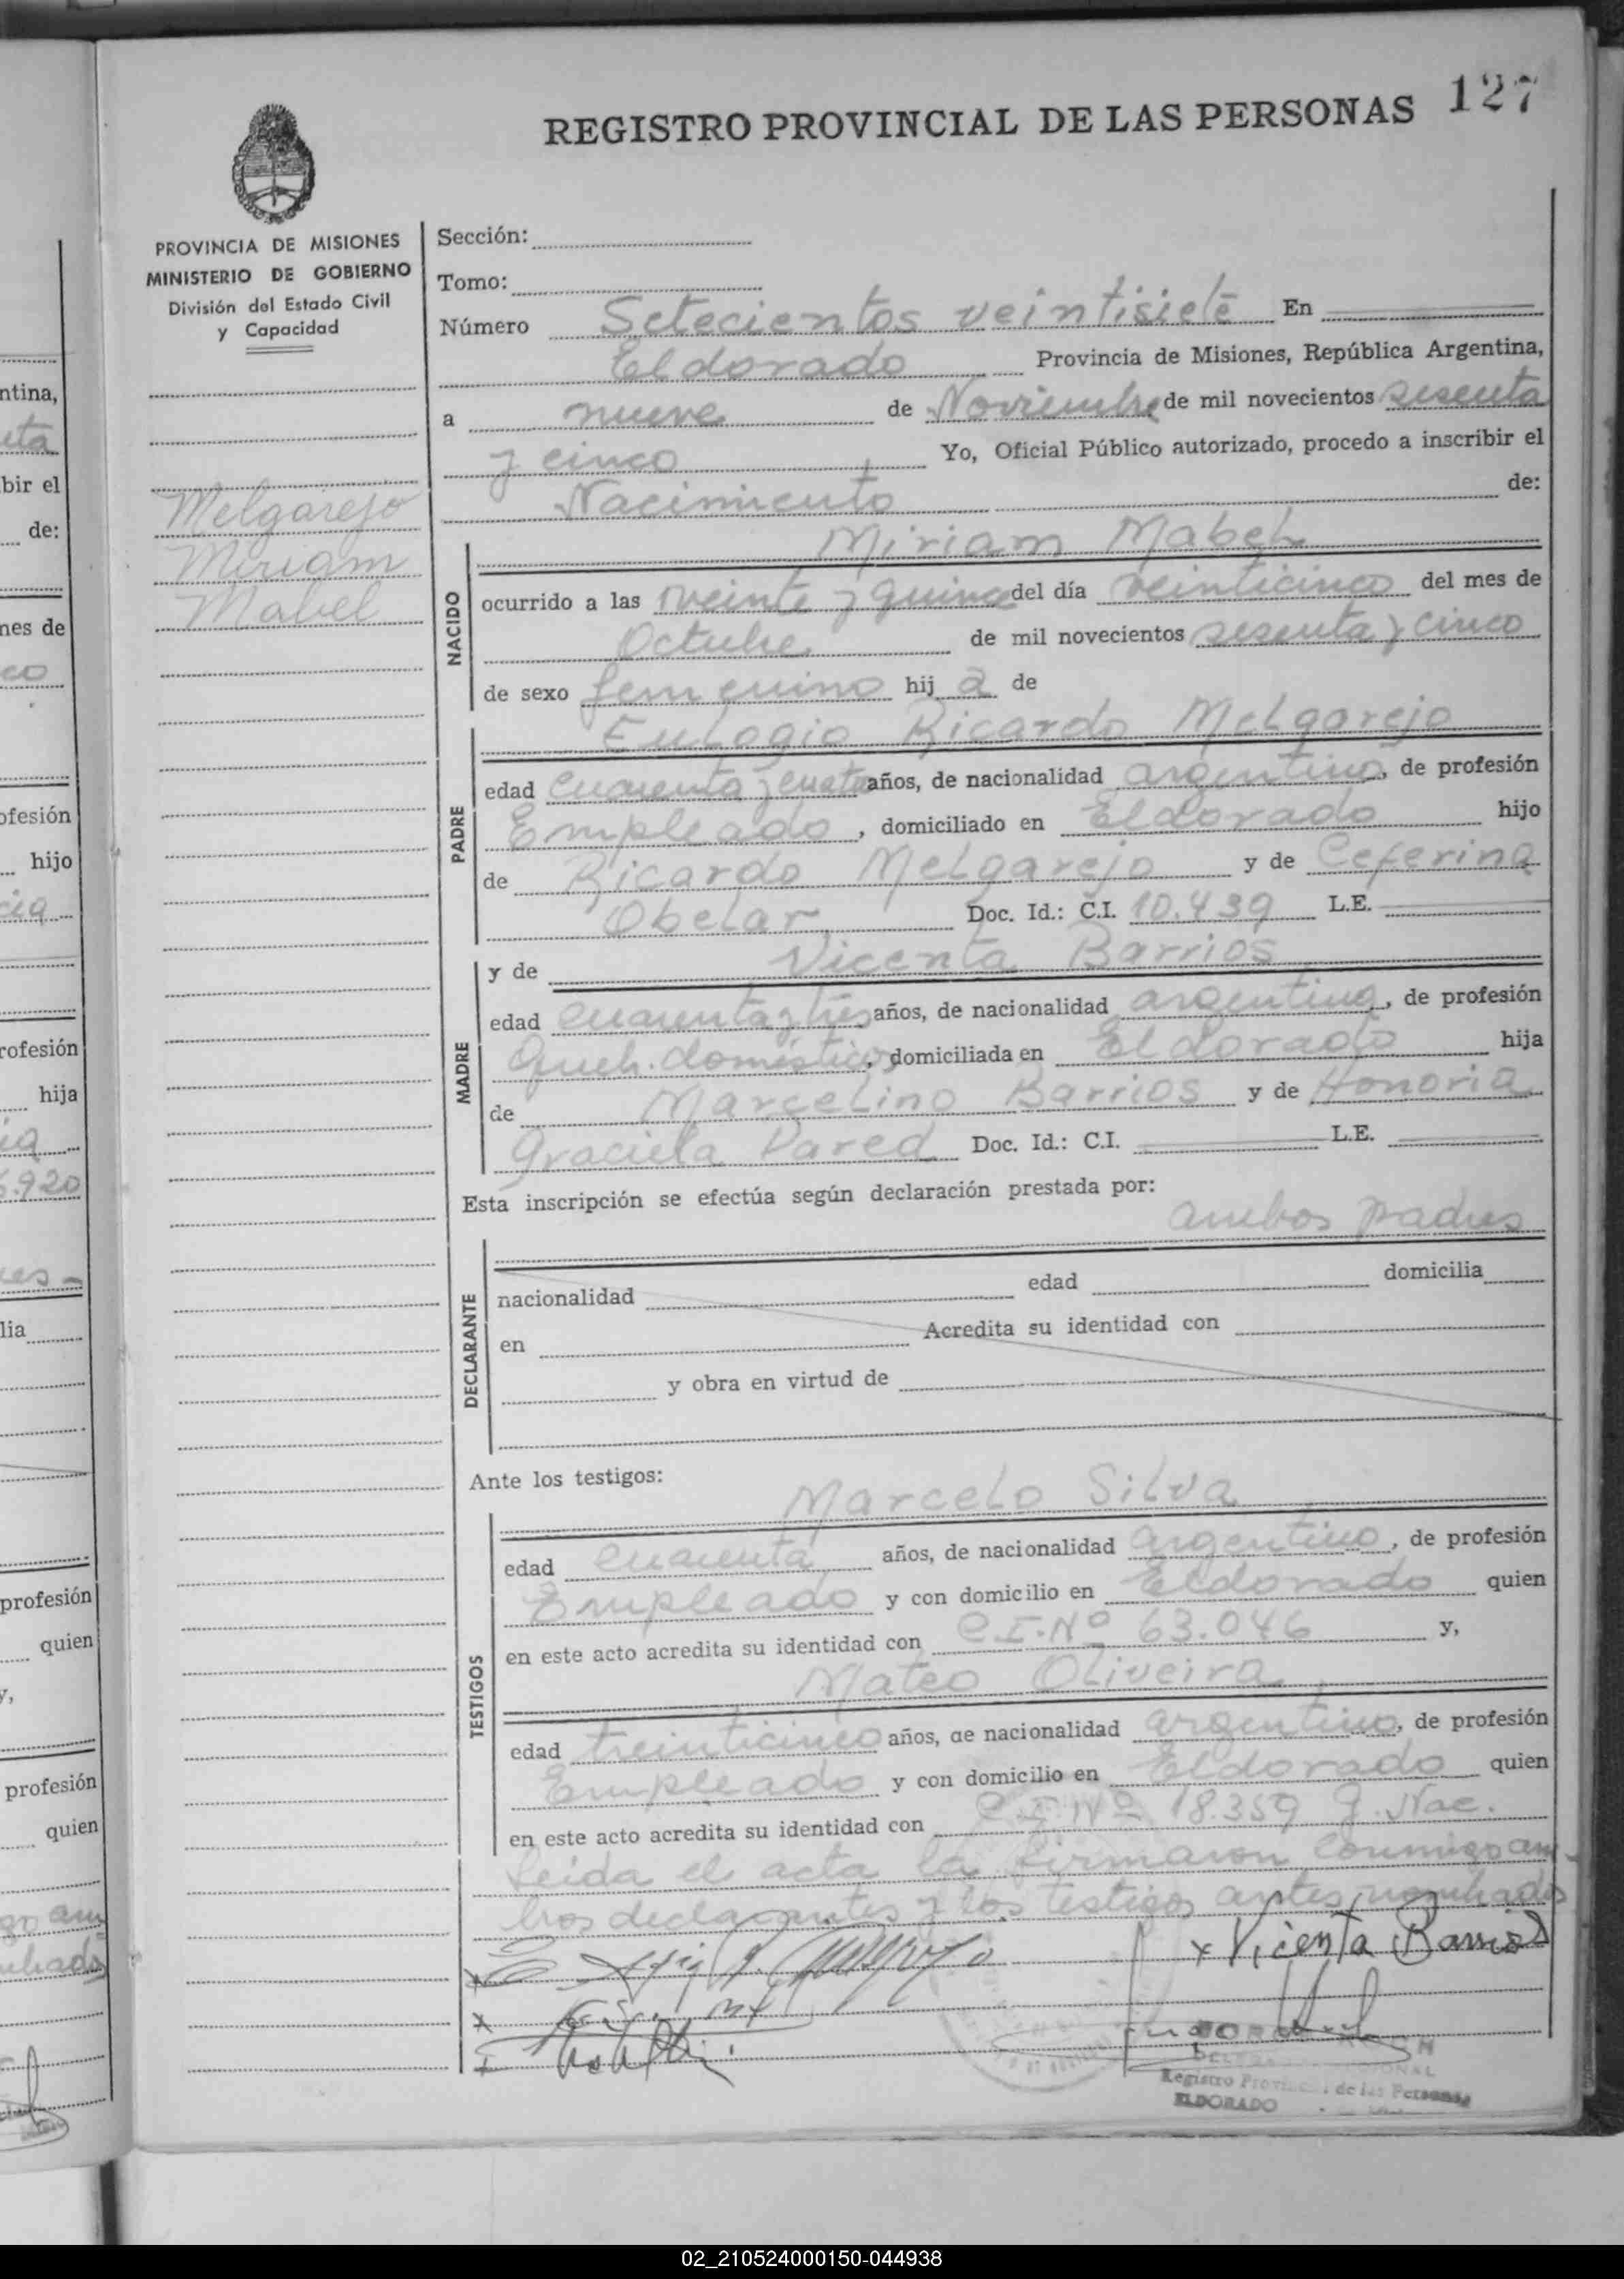 REGISTRO PROVINCIAL DE LAS PERSONAS 127
PROVINCIA DE MISIONES
MINISTERIO DE GOBIERNO
División del Estado Civil
y Capacidad
Melgarejo
Miriam
Mabel
Sección:
Tomo:
Número Setecientos veintisiete En
Eldorado Provincia de Misiones, República Argentina,
a nueve de Noviembre de mil novecientos sesenta
y cinco Yo, Oficial Público autorizado, procedo a inscribir el
Nacimiento de:
NACIDO
Miriam Mabel
ocurrido a las veinte y quince del día veinticinco del mes de
Octubre de mil novecientos sesenta y cinco
de sexo femenino hij a de
PADRE
Eulogio Ricardo Melgarejo
edad cuarenta y cuatro años, de nacionalidad argentino, de profesión
Empleado, domiciliado en Eldorado hijo
de Ricardo Melgarejo y de Ceferina
Obelar Doc. Id.: C.I. 10.439 L.E.
MADRE
y de Vicenta Barrios
edad cuarenta y tres años, de nacionalidad argentina, de profesión
Queh. domésticos, domiciliada en Eldorado hija
de Marcelino Barrios y de Honoria
Graciela Pared Doc. Id.: C.I. L.E.
Esta inscripción se efectúa según declaración prestada por:
ambos padres
DECLARANTE
nacionalidad edad domicilia
en Acredita su identidad con
y obra en virtud de
Ante los testigos:
TESTIGOS
Marcelo Silva
edad cuarenta años, de nacionalidad argentino, de profesión
Empleado y con domicilio en Eldorado quien
en este acto acredita su identidad con C.I. Nº 63.046 y,
Mateo Oliveira
edad treinticinco años, de nacionalidad argentino, de profesión
Empleado y con domicilio en Eldorado quien
en este acto acredita su identidad con C.I Nº 18.359 G. Nac.
Leida el acta la firmaron conmigo am-
bos declarantes y los testigos antes nombrados
x Vicenta Barrios
Registro Provincial de las Personas
ELDORADO
02_210524000150-044938